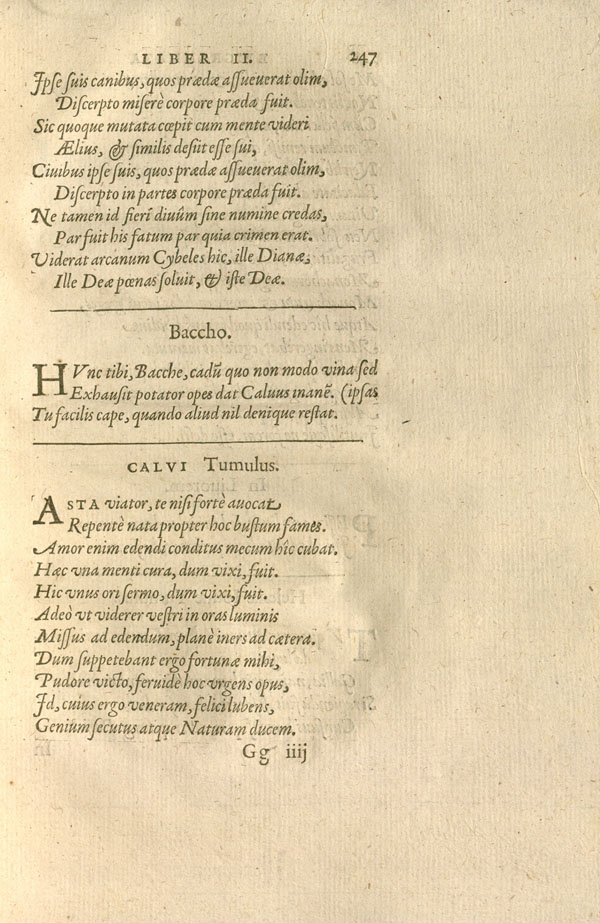 LIBER II. 247
Ipse suis canibus, quos prædæ assueuerat olim,
Discerpto miserè corpore præda fuit.
Sic quoque mutata cœpit cum mente videri
Ælius, & similis desiit esse sui,
Ciuibus ipse suis, quos prædæ assueuerat olim,
Discerpto in partes corpore præda fuit.
Ne tamen id fieri diuûm sine numine credas,
Par fuit his fatum par quia crimen erat.
Viderat arcanum Cybeles hic, ille Dianæ,
Ille Deæ pœnas soluit, & iste Deæ.
Baccho.
HVnc tibi, Bacche, cadũ quo non modo vina sed
Exhausit potator opes dat Caluus inanẽ. (ipsas
Tu facilis cape, quando aliud nil denique restat.
CALVI Tumulus.
ASTA viator, te nisi fortè auocat
Repentè nata propter hoc bustum fames.
Amor enim edendi conditus mecum hîc cubat.
Hæc vna menti cura, dum vixi, fuit.
Hic vnus ori sermo, dum vixi, fuit.
Adeò vt viderer vestri in oras luminis
Missus ad edendum, planè iners ad cætera.
Dum suppetebant ergo fortunæ mihi,
Pudore victo, feruidè hoc vrgens opus,
Id, cuius ergo veneram, felici lubens,
Genium secutus atque Naturam ducem.
Gg iiij